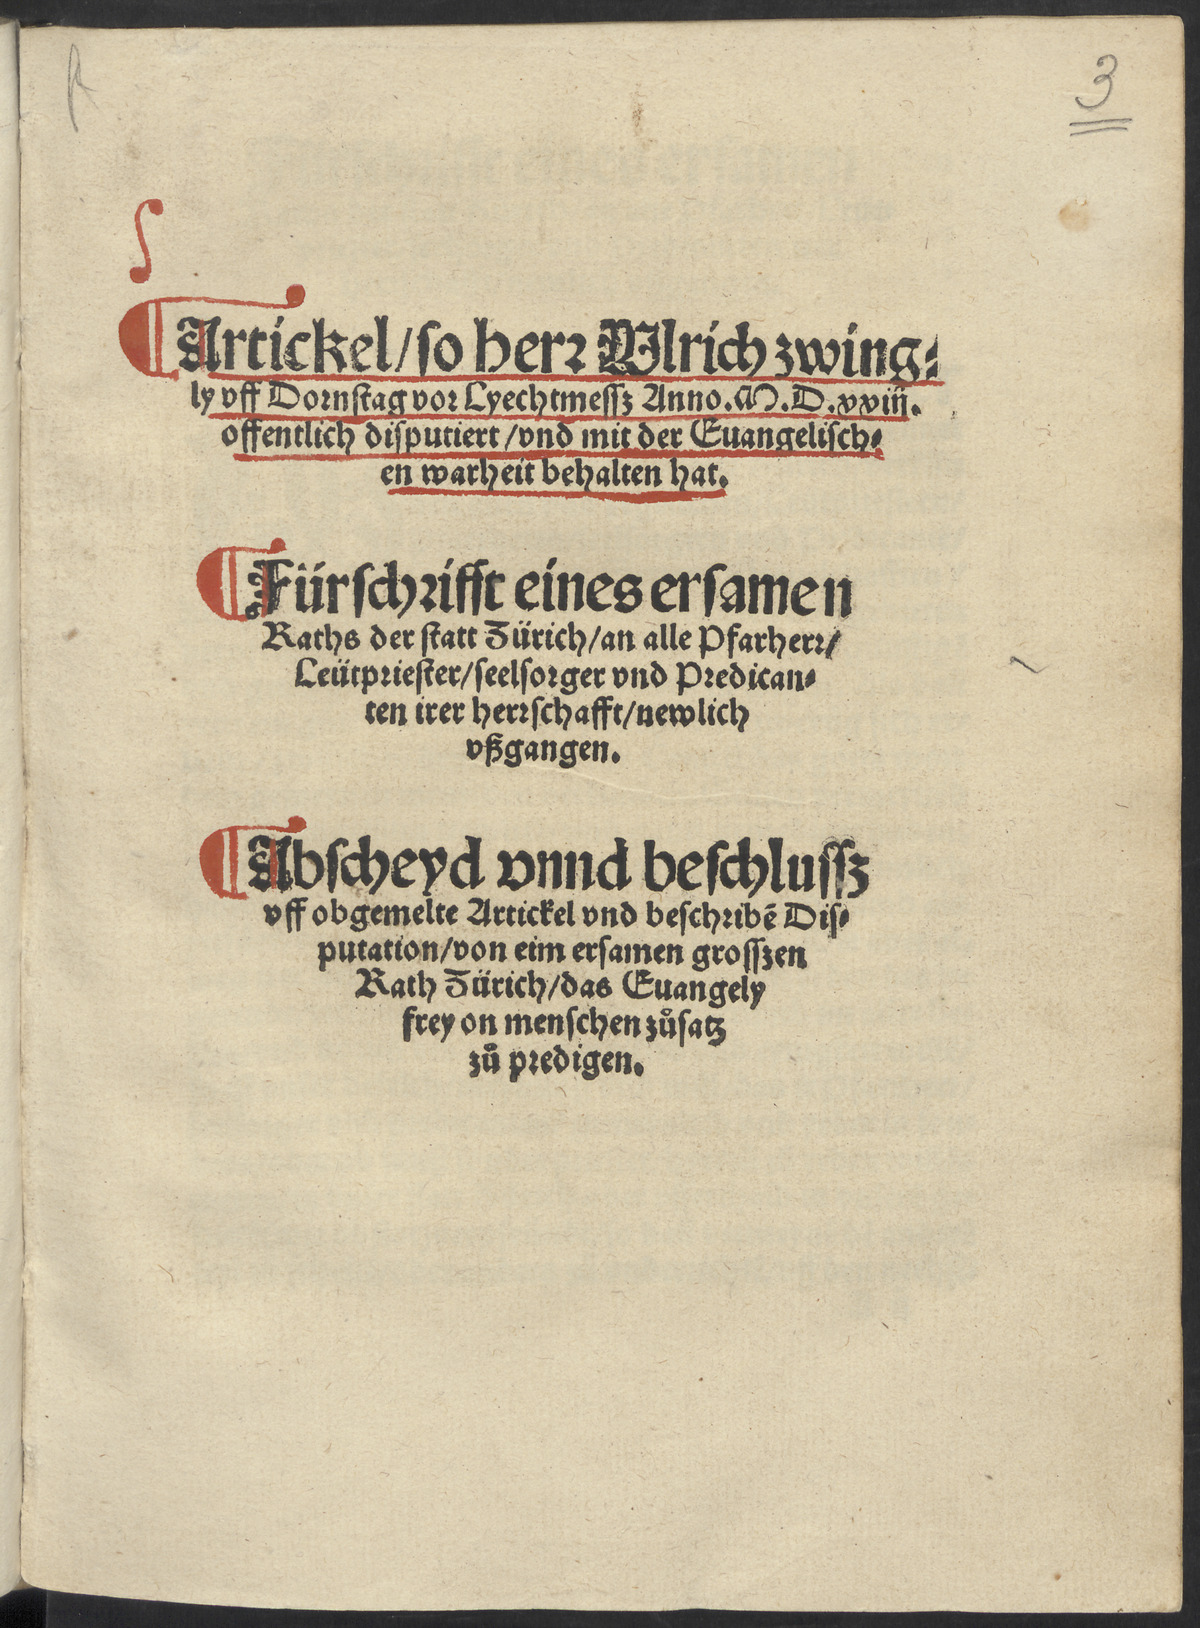 3
Artickel/so herr Vlrich zwing⸗
ly vff Dornstag vor Lyechtmessz Anno.M.D.xxiii.
offentlich disputiert/vnd mit der Euangelisch⸗
en warheit behalten hat.
Fürschrifft eines ersamen
Raths der statt Zürich/an alle Pfarherr/
Leütpriester/seelsorger vnd Predican⸗
ten irer herrschafft/newlich
vßgangen.
Abscheyd vnnd beschlussz
vff obgemelte Artickel vnd beschribē Dis⸗
putation/von eim ersamen grosszen
Rath Zürich/das Euangely
frey on menschen zůsatz
zů predigen.